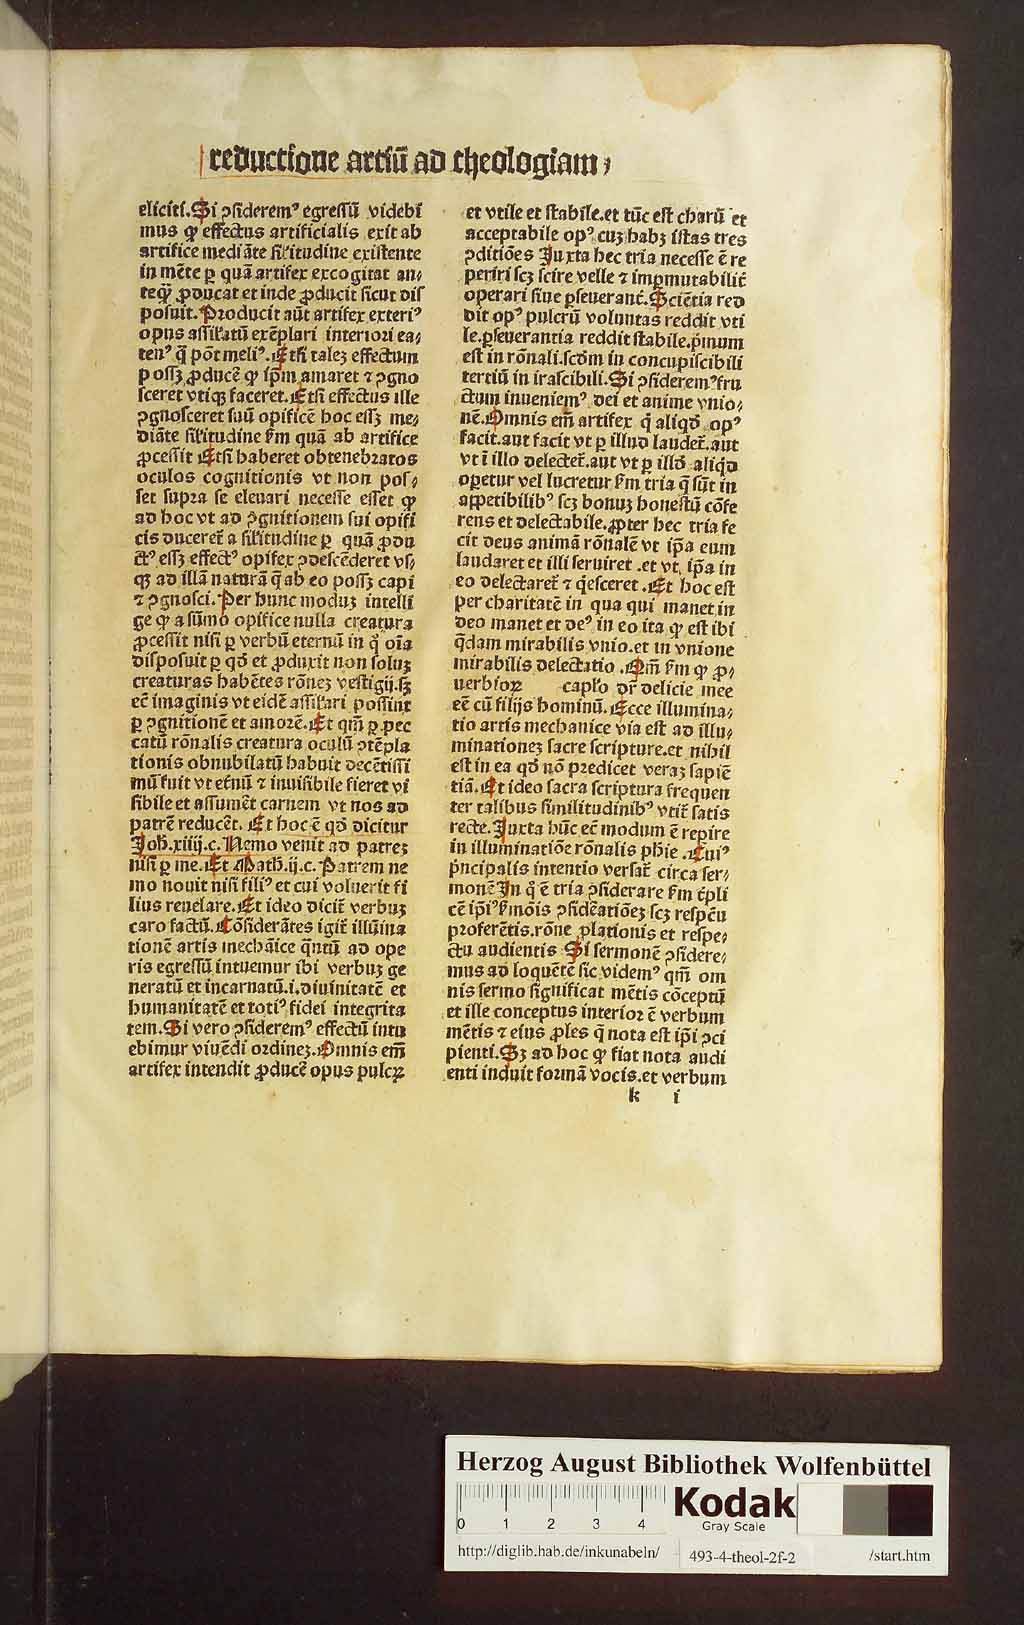 reductione artiū ad theologiam,
eliciti. Si ꝯsideremꝰ egressū videbi
mus ꝙ effectus artificialis exit ab
artifice mediāte sil'itudine existente
in mēte ꝑ quā artifex excogitat an-
teqꝫ ꝓducat et inde ꝓducit sicut dis
posuit. Producit aūt artifex exteriꝰ
opus assil'atū exēplari interiori ea-
tenꝰ q̄ pōt meliꝰ. Etsi taleꝫ effectum
possꝫ ꝓducē ꝙ ip̄m amaret ⁊ ꝯgno
sceret vtiqꝫ faceret. Etsi effectus ille
ꝯgnosceret suū opificē hoc essꝫ me-
diāte sil'itudine km̄ quā ab artifice
ꝓcessit Etsi haberet obtenebratos
oculos cognitionis vt non pos-
set supra se eleuari necesse esset ꝙ
ad hoc vt ad ꝯgnitionem sui opifi
cis duceret̄ a sil'itudine ꝑ quā ꝓdu
ctꝰ essꝫ effectꝰ opifex ꝯdescēderet vs-
qꝫ ad illā naturā q̄ ab eo possꝫ capi
⁊ ꝯgnosci. Per hunc moduꝫ intelli
ge ꝙ a sūmo opifice nulla creatura
ꝓcessit nisi ꝑ verbū eternū in qͦ oīa
disposuit ꝑ qd̄ et ꝓduxit non soluꝫ
creaturas habētes rōneꝫ vestigij. sꝫ
ec̄ imaginis vt eidē assil'ari possint
ꝑ ꝯgnitionē et amorē. Et qm̄ ꝑ pec
catū rōnalis creatura oculū ꝯtēpla
tionis obnubilatū habuit decētissi
mū fuit vt et̄nū ⁊ inuisibile fieret vi
sibile et assumēt carnem vt nos ad
patrē reducēt. Et hoc ē qd̄ dicitur
Joh. xiiij. c. Nemo venit ad patreꝫ
nisi ꝑ me. Et Math. ij. c. Patrem ne
mo nouit nisi filiꝰ et cui voluerit fi
lius reuelare. Et ideo dicit̄ verbuꝫ
caro factū. Cōsiderātes igit̄ illūina
tionē artis mechāice q̄ntū ad ope
ris egressū intuemur ibi verbuꝫ ge
neratū et incarnatū. i. diuinitatē et
humanitatē et totiꝰ fidei integrita
tem. Si vero ꝯsideremꝰ effectū intu
ebimur viuēdi ordineꝫ. Omnis em̄
artifex intendit ꝓducē opus pulcꝝ
et vtile et stabile. et tūc est charū et
acceptabile opꝰ cuꝫ habꝫ istas tres
ꝯditiōes Juxta hec tria necesse ē re
periri scꝫ scire velle ⁊ impmutabilit̄
operari siue ꝑseuerant̄. Sciētia red
dit opꝰ pulcrū voluntas reddit vti
le. ꝑseuerantia reddit stabile. p̄mum
est in rōnali. scdm in concupiscibili
tertiū in irascibili. Si ꝯsideremꝰ fru
ctum inueniemꝰ dei et anime vnio-
nē. Omnis em̄ artifex q̄ aliqd̄ opꝰ
facit. aut facit vt ꝑ illud laudet̄. aut
vt ī illo delectet̄. aut vt ꝑ illd̄ aliqd̄
operetur vel lucretur km̄ tria q̄ sūt in
appetibilibꝰ scꝫ bonuꝫ honestū cōfe
rens et delectabile. ꝓpter hec tria fe
cit deus animā rōnalē vt ip̄a eum
laudaret et illi seruiret . et vt ip̄a in
eo delectaret̄ ⁊ q̇esceret . Et hoc est
per charitatē in qua qui manet in
deo manet et deꝰ in eo ita ꝙ est ibi
q̄dam mirabilis vnio. et in vnione
mirabilis delectatio . Qm̄ km̄ ꝙ ꝓ-
uerbioꝝ caplo dr̄ delicie mee
eē cū filijs hominū. Ecce illumina-
tio artis mechanice via est ad illu-
minationeꝫ sacre scripture. et nihil
est in ea qd̄ nō predicet veraꝫ sapiē
tiā. Et ideo sacra scriptura frequen
ter talibus similitudinibꝰ vtit̄ satis
recte. Juxta hūc ec̄ modum ē repire
in illuminatiōe rōnalis phīe . Cuiꝰ
p̄ncipalis intentio versat̄ circa ser-
monē In q̄ ē tria ꝯsiderare km̄ t̄pli
cē ip̄iꝰ s̄mōis ꝯsideratiōeꝫ scꝫ respcū
proferētis. rōne plationis et respe-
ctu audientis Si sermonē ꝯsidere-
mus ad loquētē sic videmꝰ qm̄ om
nis sermo significat mētis cōceptū
et ille conceptus interior ē verbum
mētis ⁊ eius ꝓles q̄ nota est ip̄i ꝯci
pienti. Sꝫ ad hoc ꝙ fiat nota audi
enti induit formā vocis. et verbum
k i
Herzog August Bibliothek Wolfenbüttel
0 1 2 3 4
Kodak
Gray Scale
http://diglib.hab.de/inkunabeln/ 493-4-theol-2f-2 /start.htm